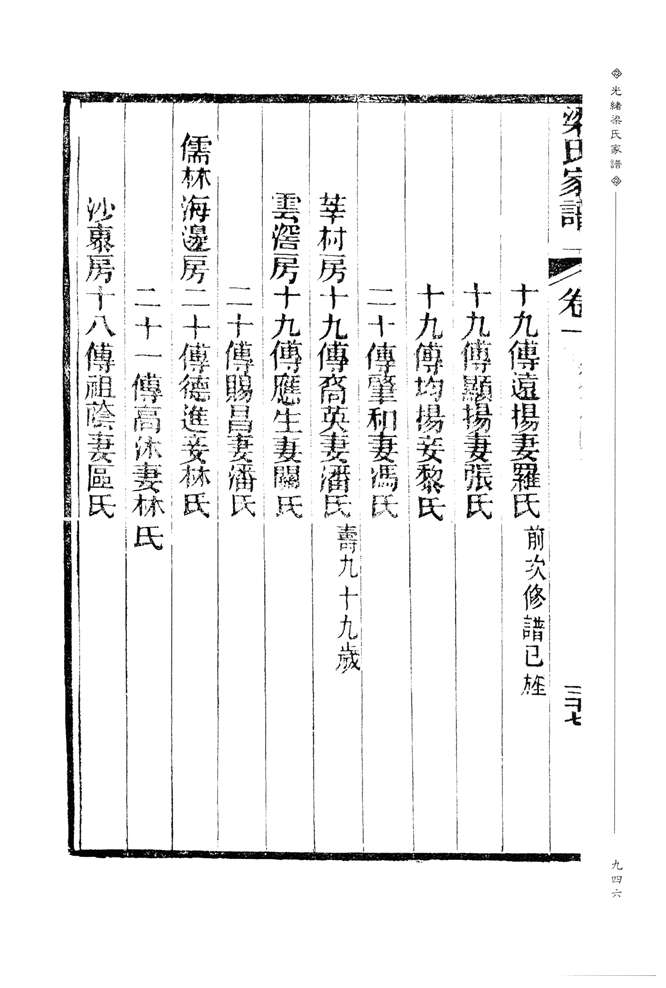 光緒梁氏家譜
梁氏家譜 卷一 三十七
十九傳遠揚妻羅氏 前次修譜已旌
十九傳顯揚妻張氏
十九傳均揚妾黎氏
二十傳肇和妻馮氏
莘村房十九傳裔英妻潘氏 壽九十九歲
雲滘房十九傳應生妻關氏
二十傳賜昌妻潘氏
儒林海邊房二十傳德進妾林氏
二十一傳高沐妻林氏
沙裏房十八傳祖蔭妻區氏
九四六